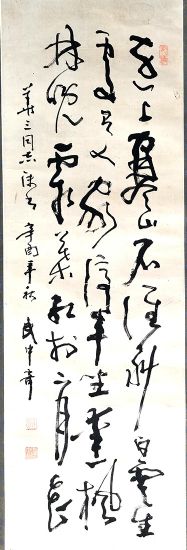 遠上寒山石徑斜白雲生
處有人家停車坐愛楓
林晚霜葉紅於二月花
華三同志 辛酉年秋 武中奇